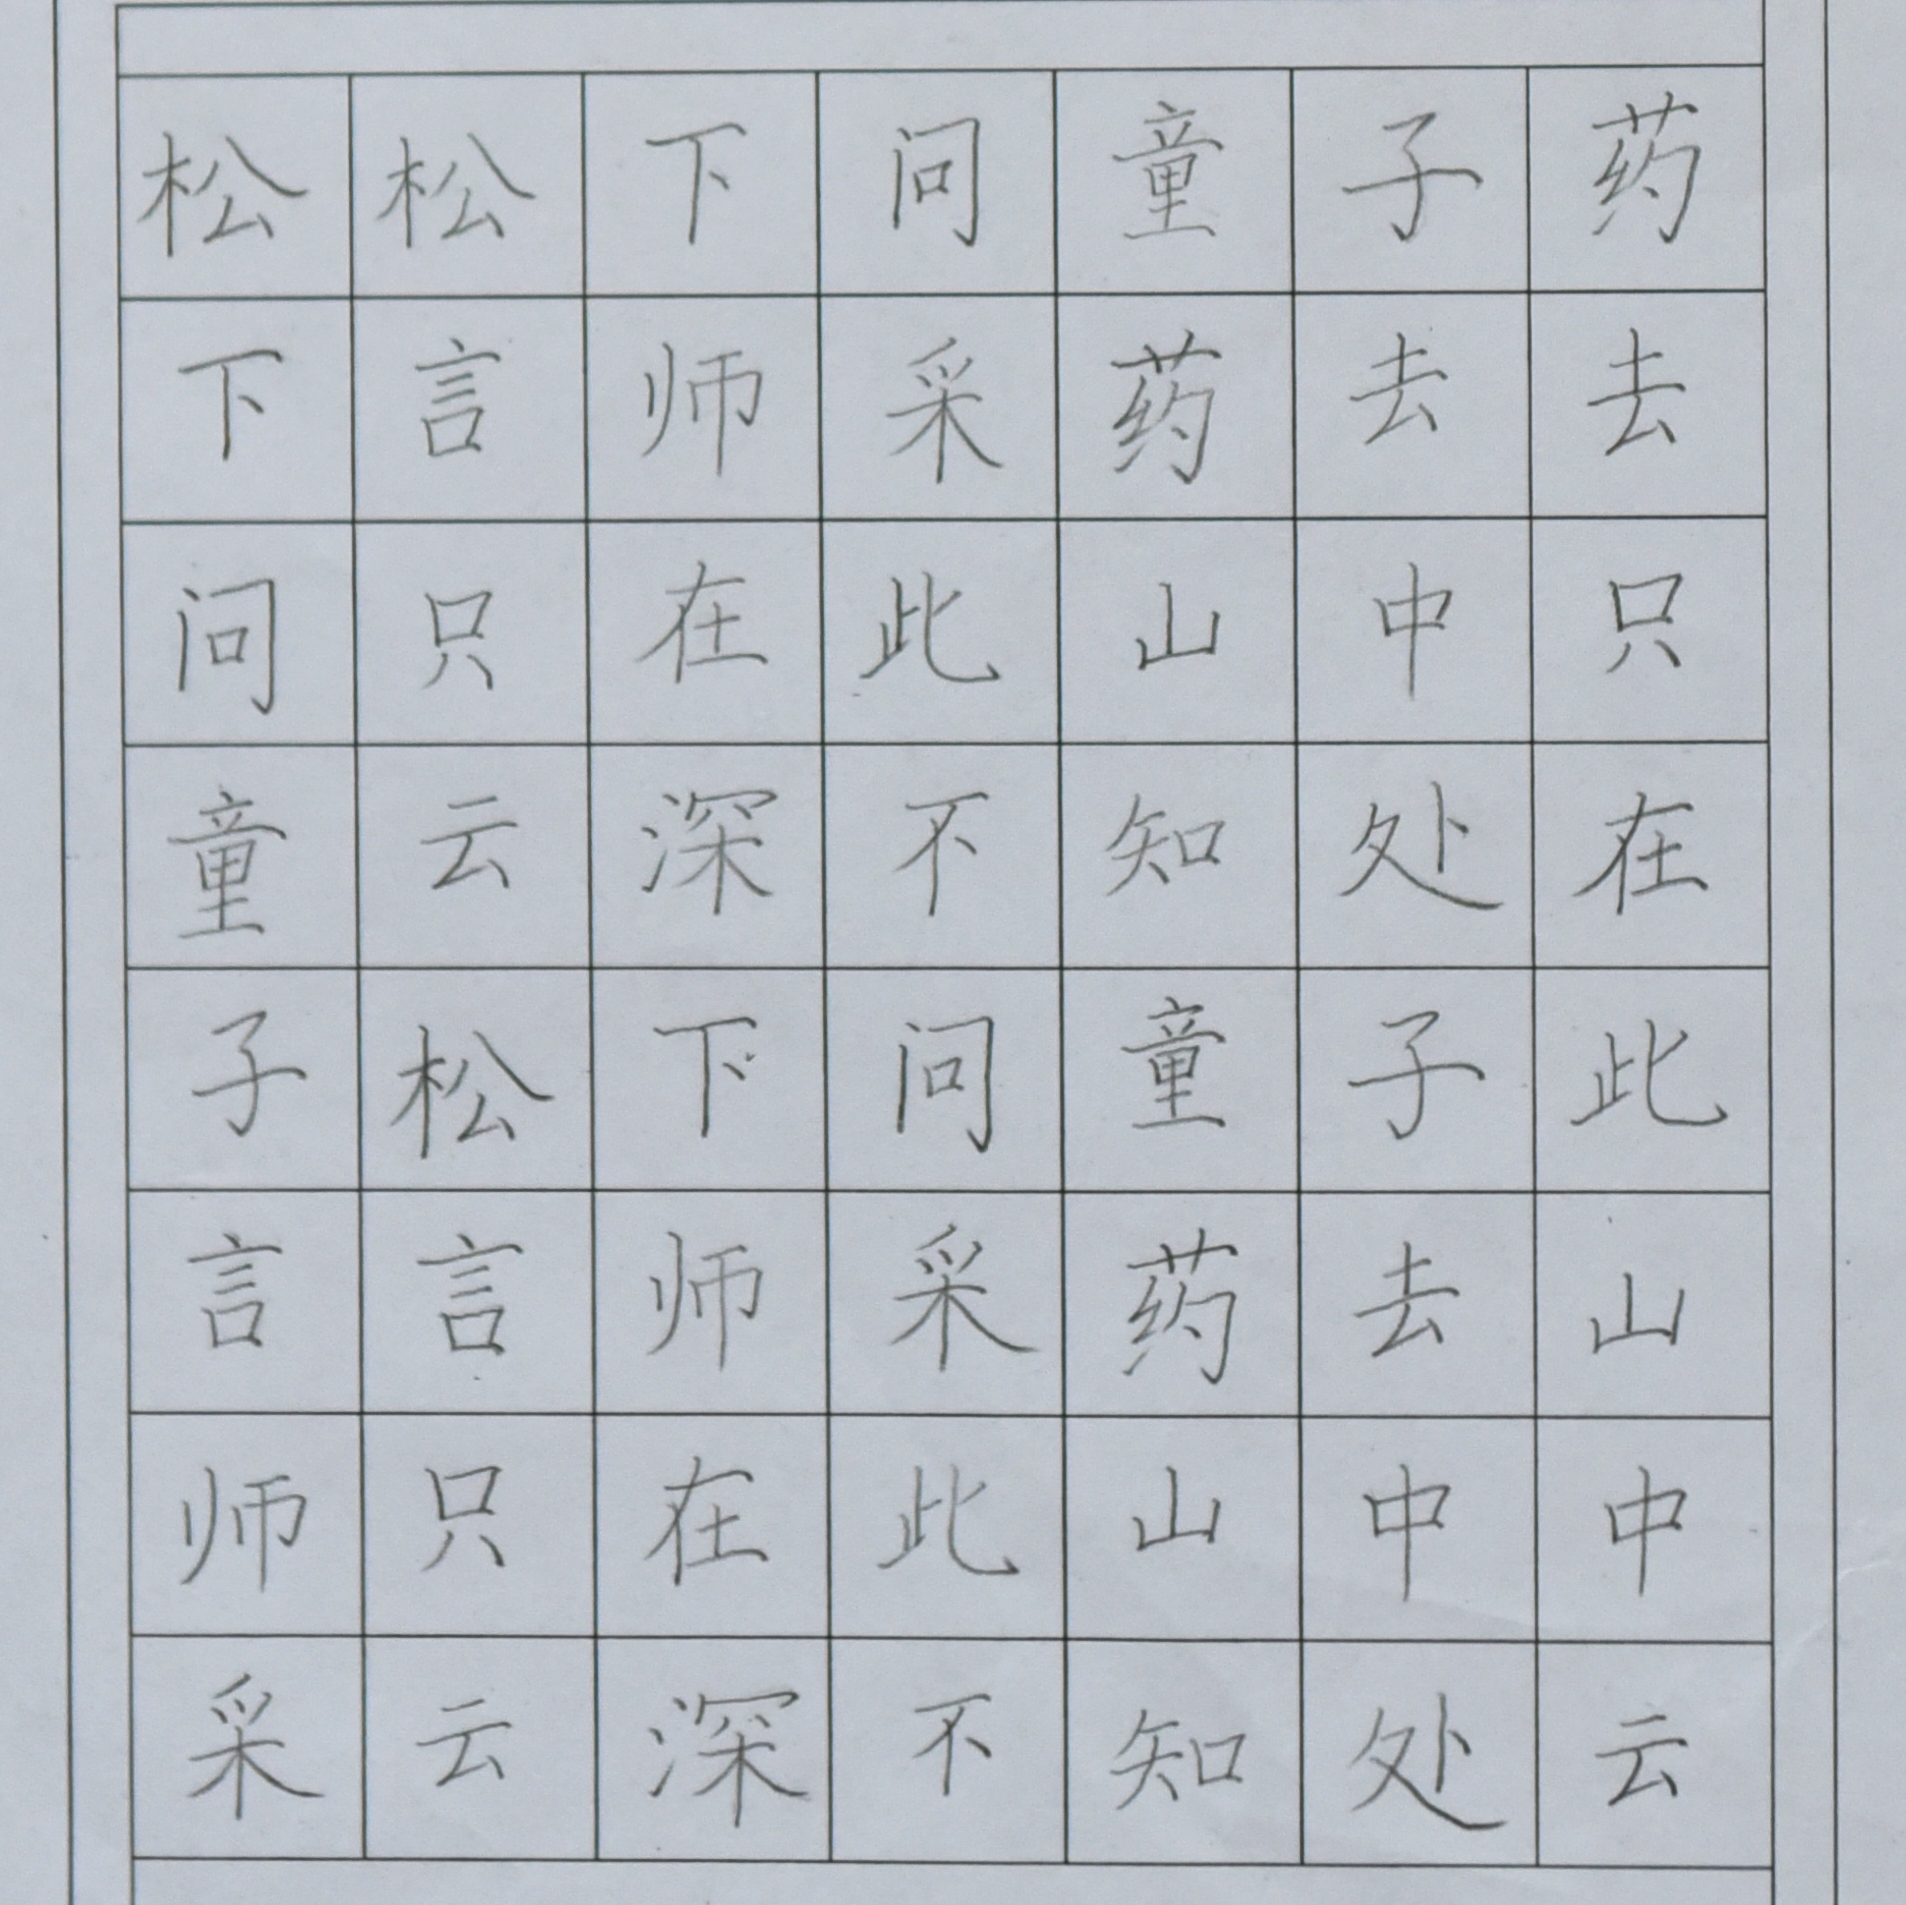 松松下问童子药
下言师采药去去
问只在此山中只
童云深不知处在
子松下问童子此
言言师采药去山
师只在此山中中
采云深不知处云